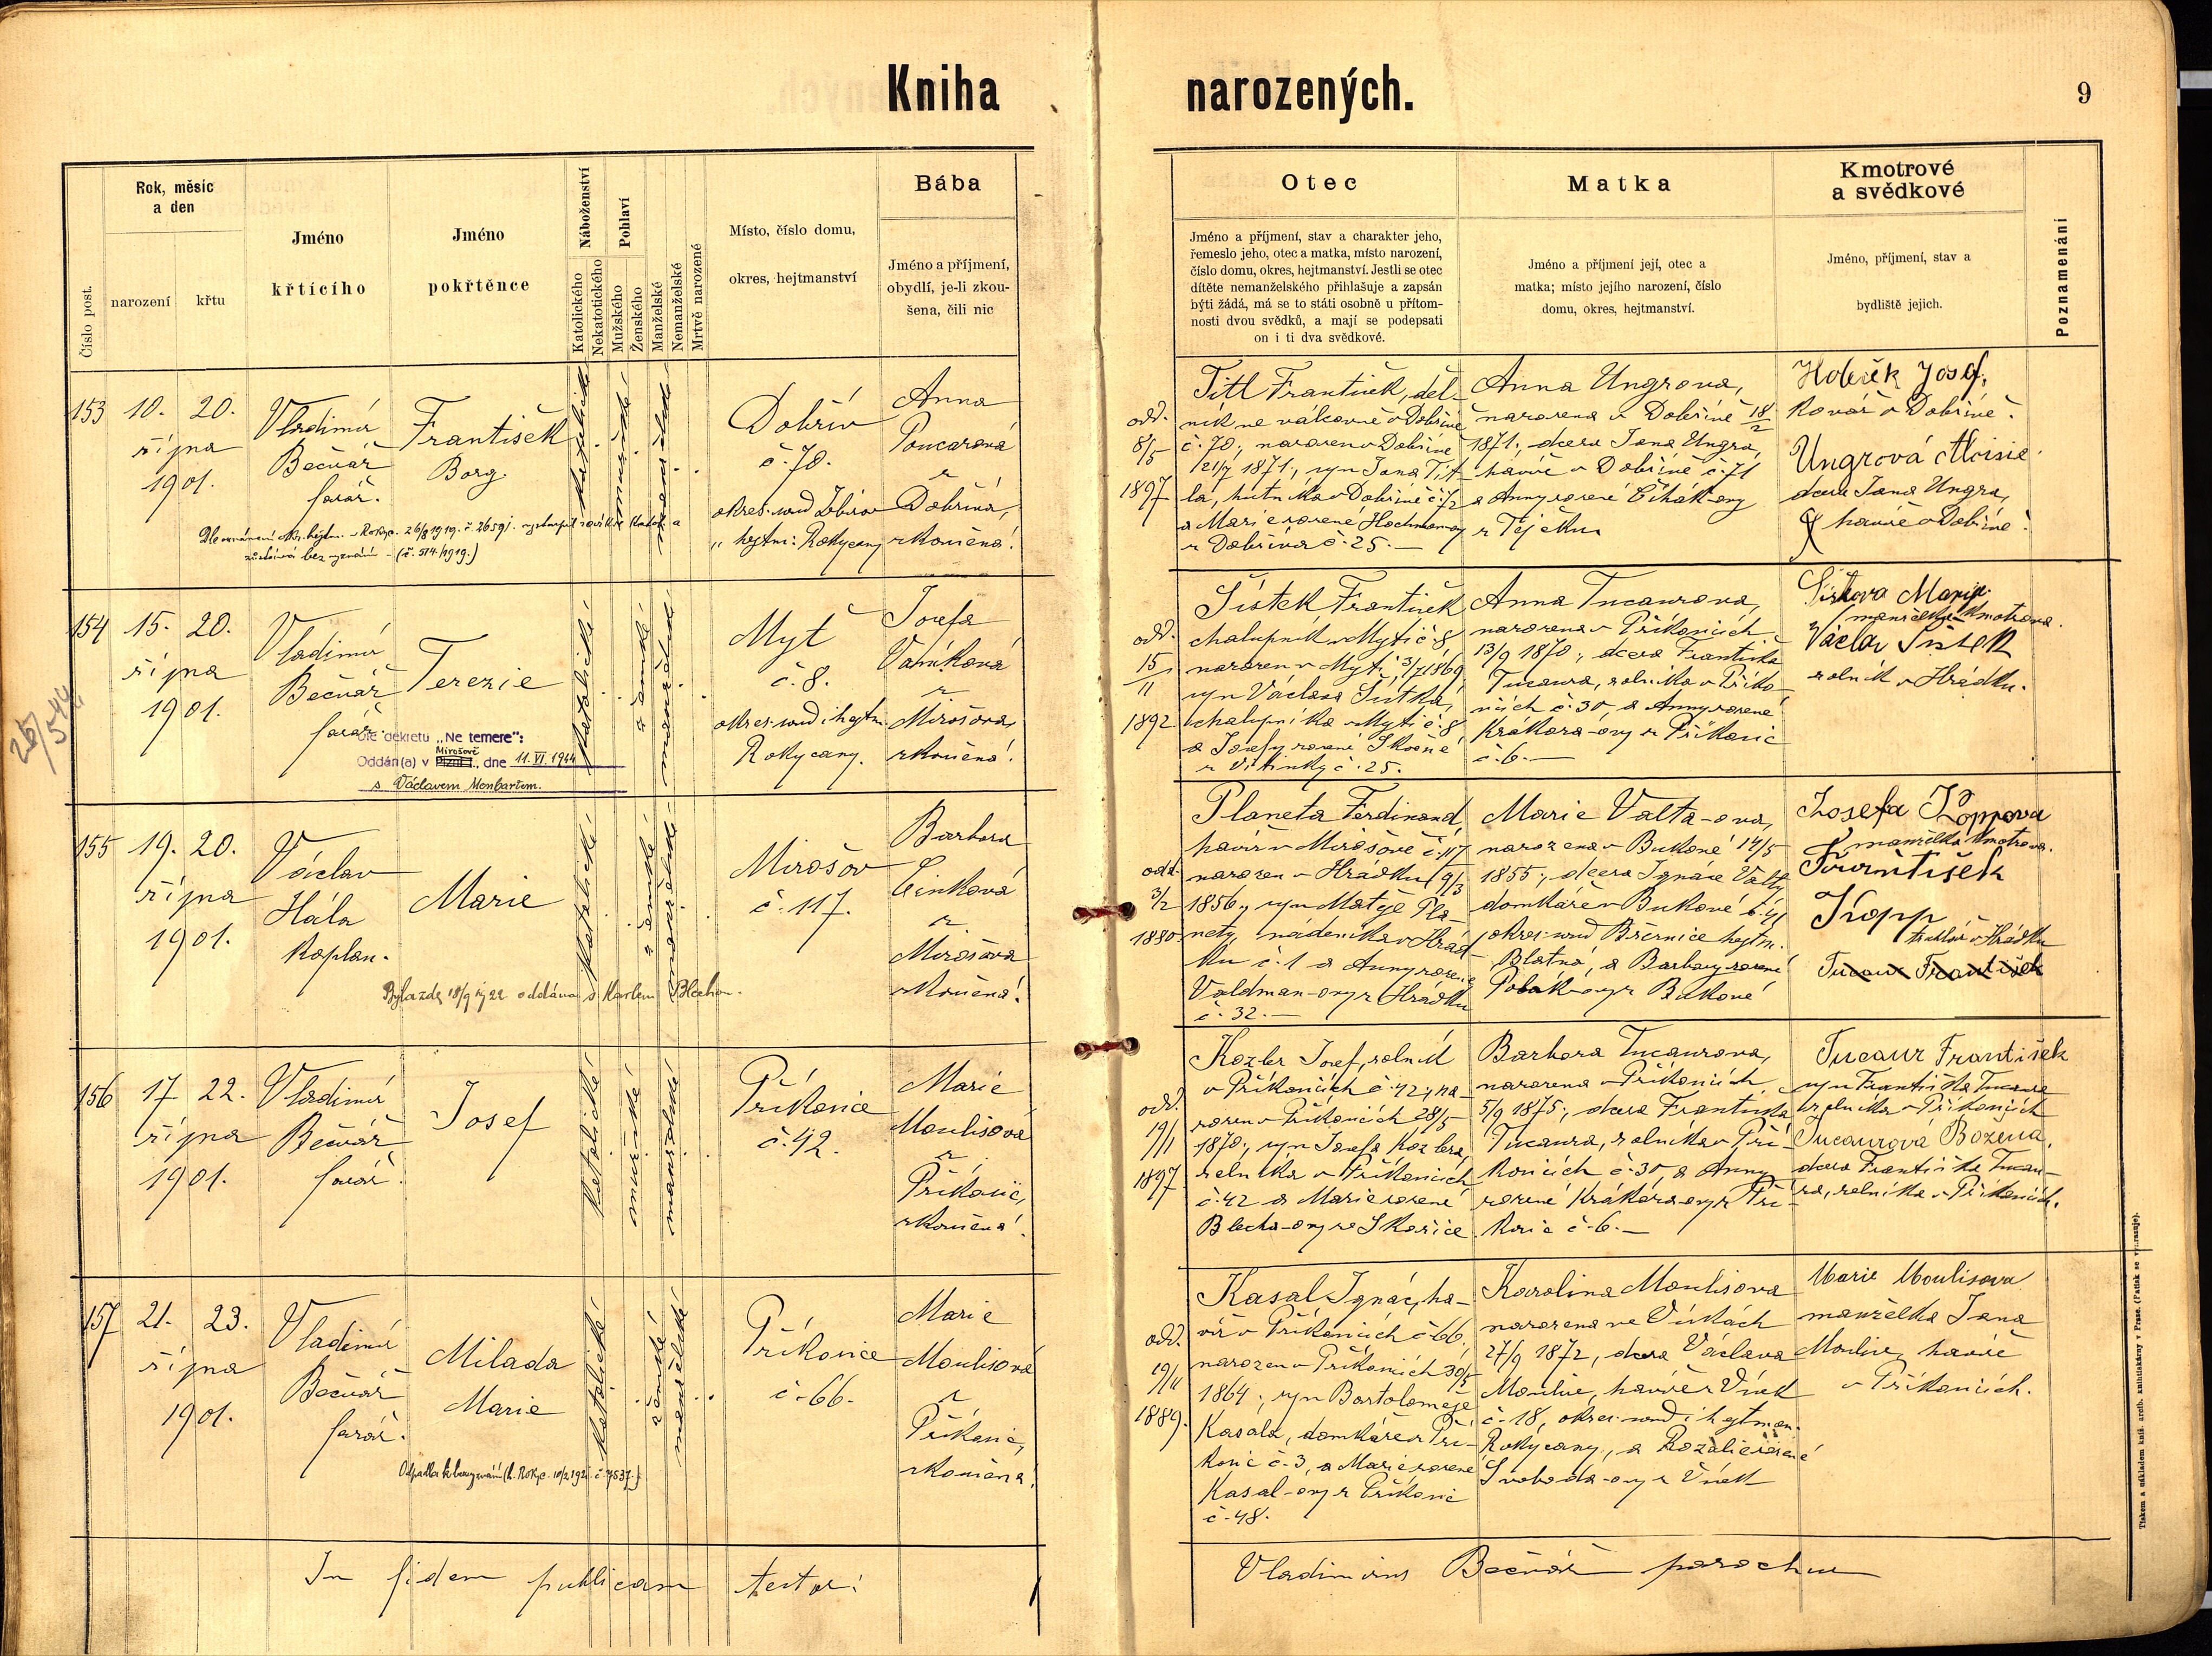 Kniha narozených.
9
Číslo post.
Rok, měsíc
a den
narození
křtu
Jméno
křtícího
Jméno
pokřtěnce
Náboženství
Katolického
Nekatotického
Pohlaví
Mužského
Ženského
Manželské
Nemanželské
Mrtvě narozené
Místo, číslo domu,
okres, hejtmanství
Bába
Jméno a příjmení,
obydlí, je-li zkou-
šena, čili nic
Otec
Jméno a příjmení, stav a charakter jeho,
řemeslo jeho, otec a matka, místo narození,
číslo domu, okres, hejtmanství. Jestli se otec
dítěte nemanželského přihlašuje a zapsán
býti žádá, má se to státi osobně u přítom-
nosti dvou svědků, a mají se podepsati
on i ti dva svědkové.
Matka
Jméno a příjmení její, otec a
matka; místo jejího narození, číslo
domu, okres, hejtmanství.
Kmotrové
a svědkové
Jméno, příjmení, stav a
bydliště jejich.
Poznamenání
153
10.
října
1901.
20.
Vladimír
Bečvář
farář.
František
Borg.
katolické
mužské
manželské
Dobřív
č. 70.
okres. soud Zbirov
" hejtm: Rokycany
Anna
Poncarová
z
Dobříva,
zkoušená!
bez vyznání - (č. 574./1919.)
odd.
8/5
1897
Titl František, děl-
ník ve válcovně v Dobřívě
č. 70; narozen v Dobřívě
21/7 1871., syn Jana Tit-
la, hutníka v Dobřívě č. 72
a Marie rozené Hochman-ovy
z Dobříva č. 25. —
Anna Ungrova,
narozena v Dobřívě 18/2
1871; dcera Jana Ungra,
havíře v Dobřívě č. 71
a Anny rozené Čihák-ovy
z Těječku
Josef,
kovář v Dobřívě.
Ungrová Aloisie
dcera Jana Ungra,
havíře v Dobřívě.
154
15.
října
1901.
20.
Vladimír
Bečvář
farář.
Terezie
katolické
ženské
manželské
Mýť
č. 8.
okres. soud i hejtm.
Rokycany.
Josefa
Vaníková
z
Mirošova,
zkoušená!
Dle dekretu „Ne temere":
Mirošově
Oddán(a) v Plzni I., dne 11. VI. 1944
s Václavem Monhartem.
26/544
odd.
15/11
1892
Šístek František
chalupník v Mýti č. 8
narozen v Mýti 3/7 1869
syn Václava Šístka,
chalupníka v Mýti č. 8
a Josefy rozené Skočné
z Vítinky č. 25.
Anna Tucaurova,
narozena v Příkosicích
13/9 1870; dcera Františka
Tucaura, rolníka v Příko-
sicích č. 30 a Anny rozené
Krákora-ovy z Příkosic
č. 6. —
Šístkova Marie
manželka kmotrova.
Václav Šístek
rolník v Hrádku.
155
19.
října
1901.
20.
Václav
Hála
kaplan.
Marie
katolické
ženské
manželské
Mirošov
č. 117.
Barbora
Cinková
z
Mirošova
zkoušená!
Byla zde 18/9 1922 oddána s Karlem Blechou.
odd.
3/2
1880
Planeta Ferdinand,
havíř v Mirošově č. 117
narozen v Hrádku 9/3
1856., syn Matěje Pla-
nety, nádeníka v Hrád-
ku č. 1 a Anny rozené
Valdman-ovy z Hrádku
č. 32. —
Marie Valta-ova,
narozena v Bukové 14/5
1855., dcera Ignáce Valty
domkáře v Bukové č. 41
okres. soud Březnice hejtm.
Blatná, a Barbory rozené
Polák-ovy z Bukové
Josefa Koppova
manželka kmotrova.
František
Kopp
truhlář v Hrádku
Tucaur František
156
17
října
1901.
22.
Vladimír
Bečvář
farář.
Josef
katolické
mužské
manželské
Příkosice
č. 42.
Marie
Moulisová
z
Příkosic,
zkoušená!
odd.
19/1
1897
Kozler Josef, rolník
v Příkosicích č. 42., na-
rozen v Příkosicích 28/5
1870., syn Josefa Kozlera,
rolníka v Příkosicích
č. 42 a Marie rozené
Blecha-ovy ze Skořice
Barbora Tucaurova,
narozena v Příkosicích
5/9 1875., dcera Františka
Tucaura, rolníka v Pří-
kosicích č. 30 a Anny
rozené Krákora-ovy z Pří-
kosic č. 6. —
Tucaur František
syn Františka Tucaura
rolníka v Příkosicích
Tucaurová Božena,
dcera Františka Tucau-
ra, rolníka v Příkosicích.
157
21.
října
1901.
23.
Vladimír
Bečvář
farář.
Milada
Marie
katolické
ženské
manželské
Příkosice
č. 66.
Marie
Moulisová
z
Příkosic,
zkoušená!
odd.
19/11
1889.
Kasal Ignác, ha-
víř v Příkosicích č. 66
narozen v Příkosicích 30/5
1864., syn Bartoloměje
Kasala, domkáře z Pří-
kosic č. 3, a Marie rozené
Kasal-ovy z Příkosic
č. 48.
Karolina Moulisova
narozena ve Vískách
27/9 1872, dcera Václava
Moulise, havíře z Vísek
č. 18, okres. soud i hejtman.
Rokycany, a Rozalie rozené
Svoboda-ovy z Vísek
Marie Moulisova
manželka Jana
Moulise, havíře
v Příkosicích.
In fidem publicam testor:
Vladimirus Bečvář parochus